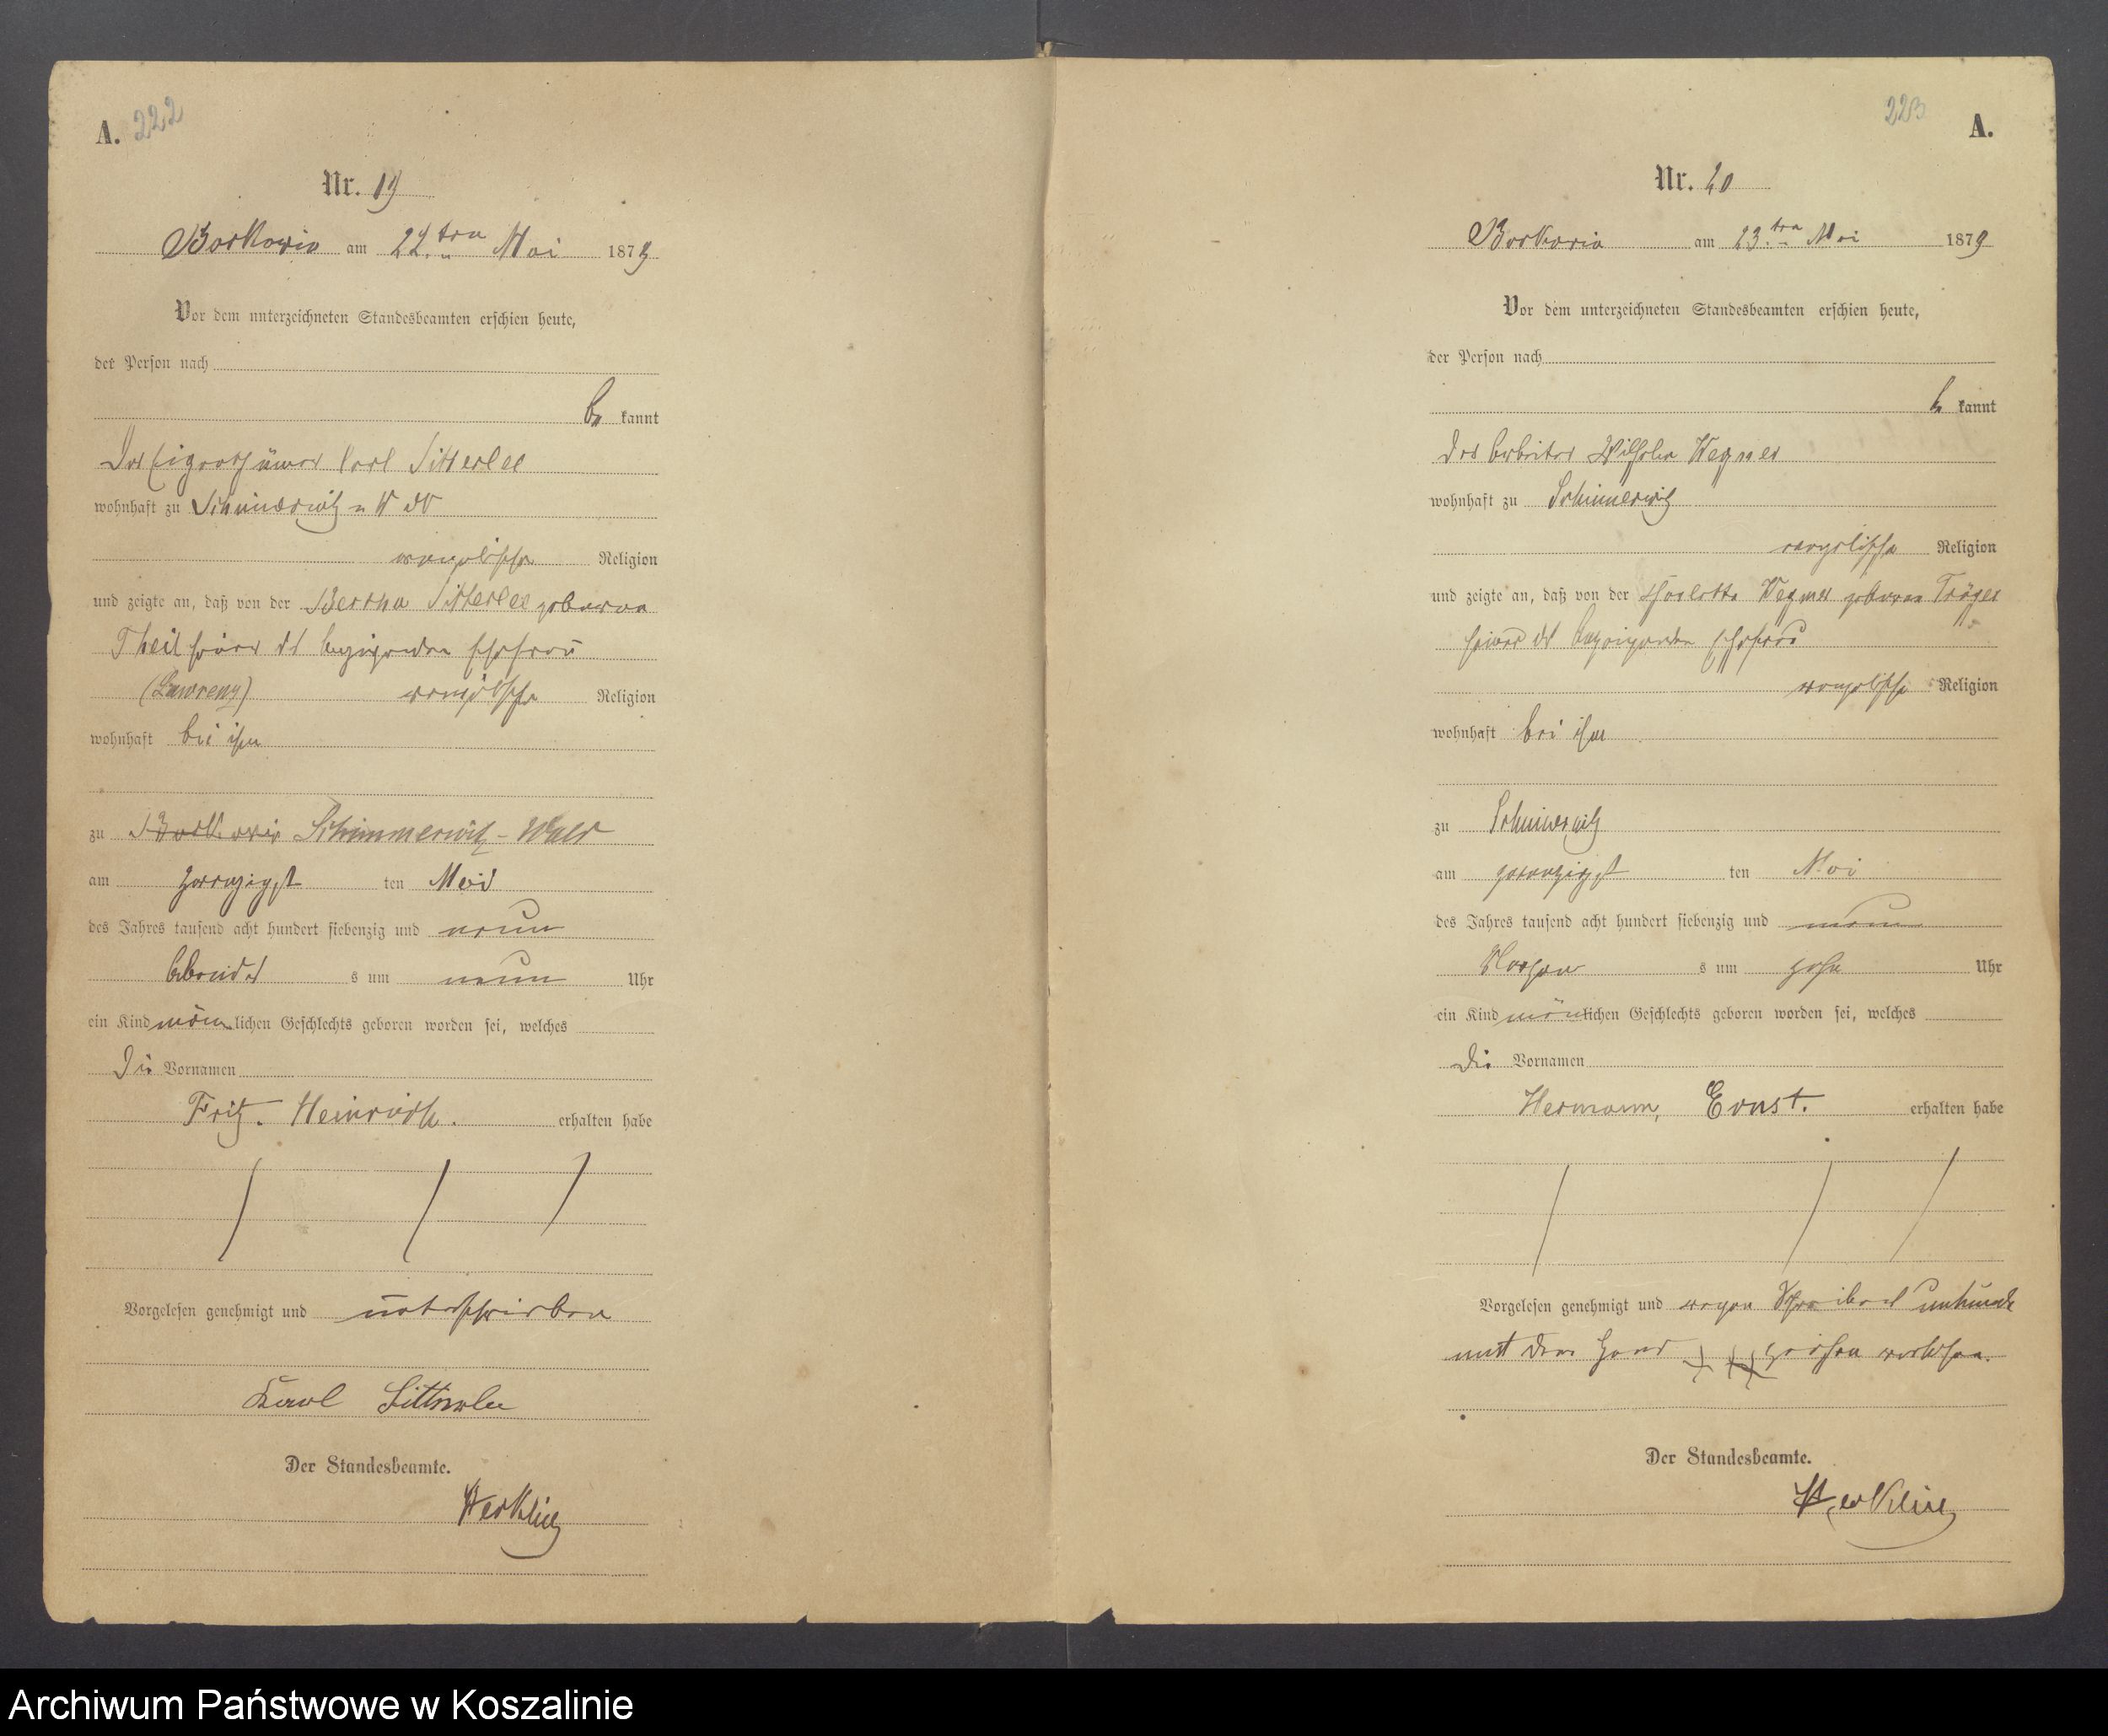 A. 222
Nr. 19
Borkowin am 22.ten Mai 1879
Vor dem unterzeichneten Standesbeamten erschien heute,
der Person nach
be kannt
Der Eigenthümer Carl Sitterlee
wohnhaft zu Schimerwitz
evangelischer Religion
und zeigte an, daß von der Bertha Sitterlee geborene
Theil seiner Ehefrau
evangelischer Religion
wohnhaft bei ihm
zu Borkowin Schimmerwitz-Wald
am zwanzigst ten Mai
des Jahres tausend acht hundert siebenzig und neun
Abends s um neun Uhr
ein Kind männlichen Geschlechts geboren worden sei, welches
Die Vornamen
Fritz. Heinrich. erhalten habe
Vorgelesen genehmigt und unterschrieben
Karl Sitterlee
Der Standesbeamte.
A.
223
Nr. 20
Borkowin am 23.ten Mai 1879
Vor dem unterzeichneten Standesbeamten erschien heute,
der Person nach
be kannt
Der Arbeiter Wilhelm Wegner
wohnhaft zu Schimerwitz
evangelischer Religion
und zeigte an, daß von der Wegner geboren Träger
seiner Ehefrau
evangelischer Religion
wohnhaft bei ihm
zu Schimerwitz
am zwanzigst ten Mai
des Jahres tausend acht hundert siebenzig und neun
Morgen s um zehn Uhr
ein Kind männlichen Geschlechts geboren worden sei, welches
Die Vornamen
Hermann, Ernst. erhalten habe
Vorgelesen genehmigt und wegen Schreibens unkunde
mit dem Hand zeichen versehen.
Der Standesbeamte.
Archiwum Państwowe w Koszalinie